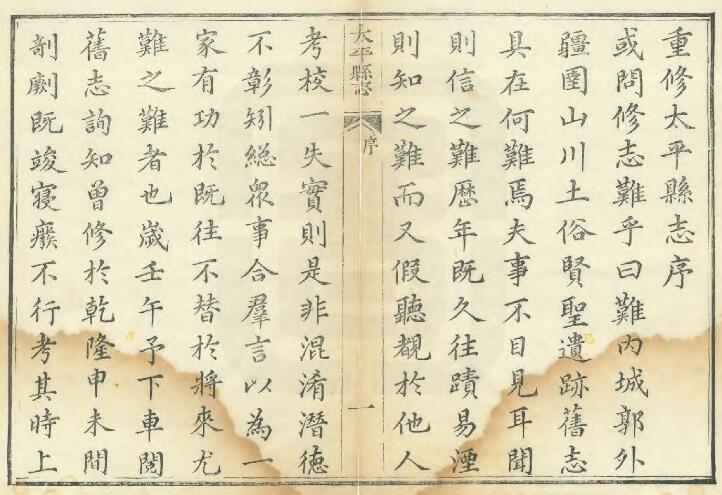 重修太平縣志序
或問修志難乎曰難內城郭外
疆圉山川土俗賢聖遺跡舊志
具在何難焉夫事不目見耳聞
則信之難歷年既久往蹟易湮
則知之難而又假聽覩於他人
太平縣志
序
一
考校一失實則是非混淆潛德
不彰矧緫衆事合羣言以為一
家有功於既往不替於將來尤
難之難者也歲壬午予下車閱
舊志詢知曾修於乾隆申未間
剞劂既竣寢癈不行考其時上